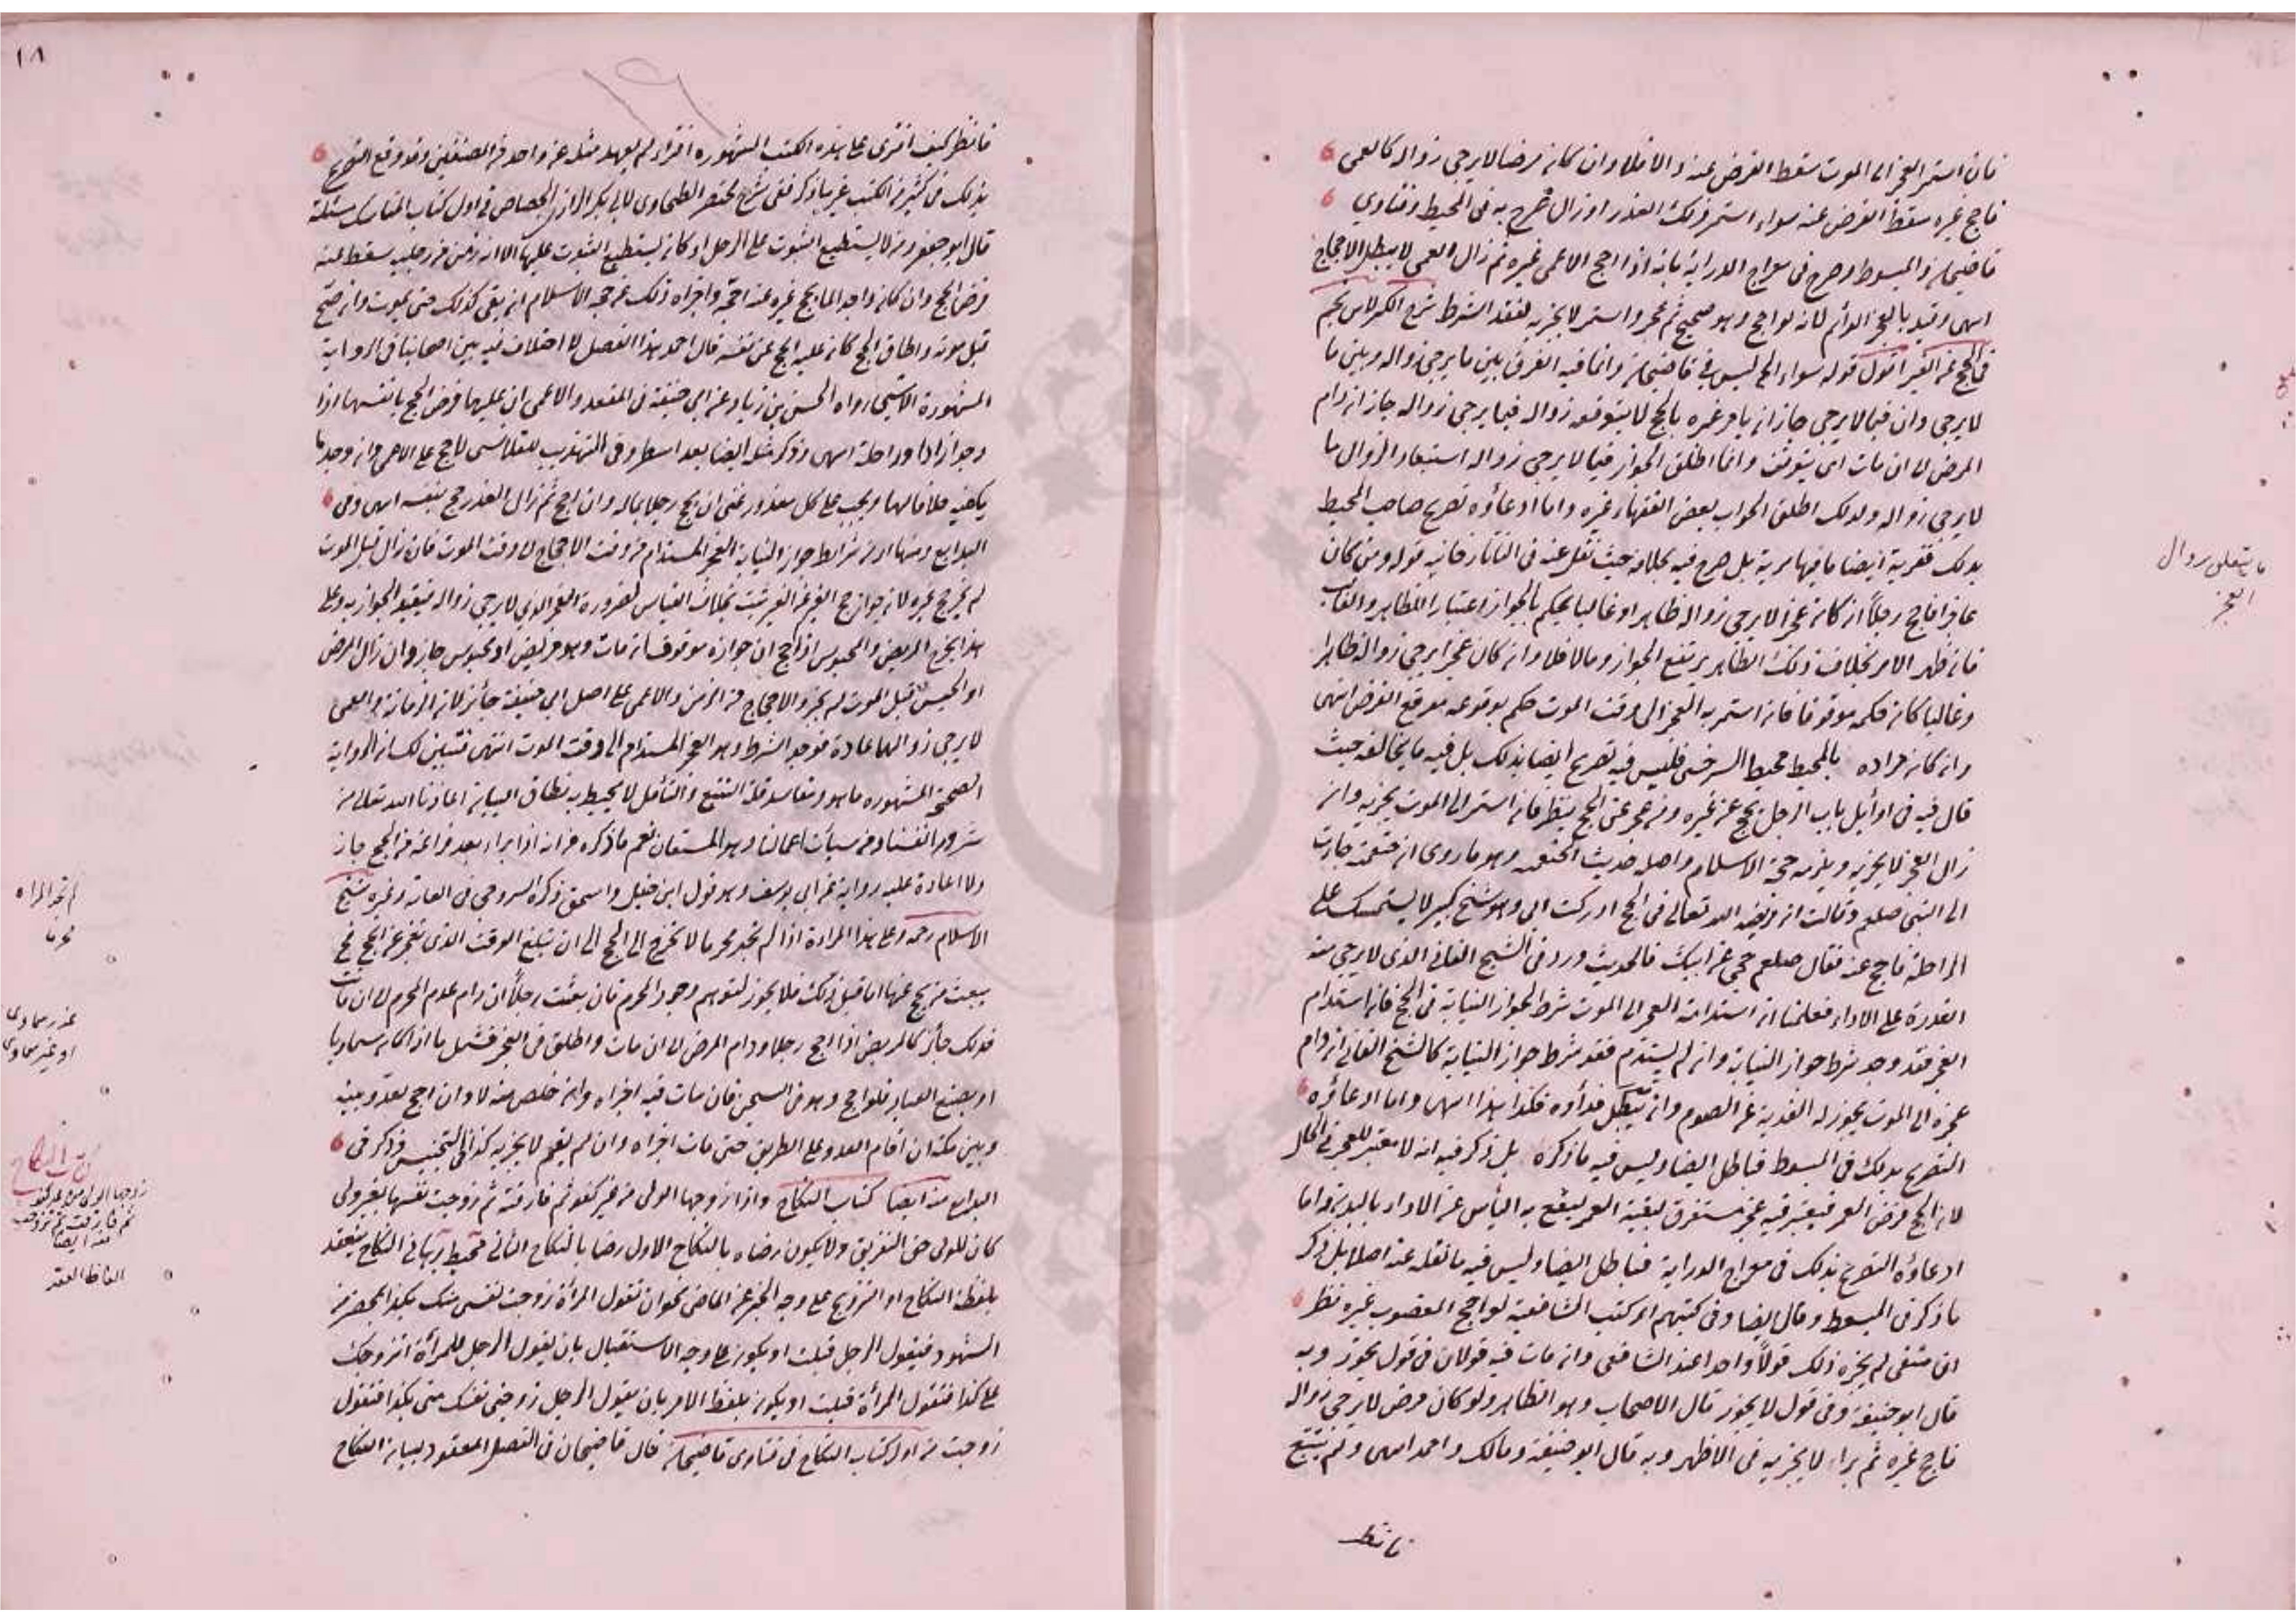 فان استمر العجز الى الموت سقط الفرض عنه والا فلا وان كان مرضا لا يرجى زواله كالعمى
فاحج غيره سقط الفرض عنه سواء استمر ذلك العذر او زال صرح به فى المحيط وفتاوي
قاضيخان والمبسوط وصرح فى معراج الدراية بانه اذا احج الاعمى غيره ثم زال العمى لا يبطل الاحجاج
انتهى وقيد بالعجز الدائم لانه لو احج وهو صحيح ثم عجز واستمر لا يجزيه لفقد الشرط شرح الكنز لابن نجيم
فى الحج عن الغير اقول قوله سواء الخ ليس فى قاضيخان وانما فيه الفرق بين ما يرجى زواله وبين ما
لا يرجى وان فيما لا يرجى جاز ان يأمر غيره بالحج لا يتوقع زواله فيما يرجى زواله جاز ان دام
المرض الى ان مات اى يتوقف وانما اطلق الجواز فيما لا يرجى زواله استبعاد الزوال ما
لا يرجى زواله ولذلك اطلق الجواب بعض الفقهاء وغيره واما ادعاؤه تصريح صاحب المحيط
بذلك ففرية ايضا ما فيها مرية بل صرح فيه بخلافه حيث نقل عنه فى التاتارخانيه قوله ومن كان
عاجزا فاحج رجلاً ان كان عجزا لا يرجى زواله ظاهرا وغالبا يحكم بالجواز اعتبارا للظاهر والغالب
فان ظهر الامر بخلاف ذلك الظاهر يرتفع الجواز ومالا فلا وان كان عجزا يرجى زواله ظاهرا
وغالبا كان حكمه موقوفا فان استمر به العجز الى وقت الموت حكم بوقوعه موقع الفرض انتهى
وان كان مراده بالمحيط محيط السرخسى فليس فيه تصريح ايضا بذلك بل فيه ما يخالفه حيث
قال فيه فى اوائل باب الرجل يحج عن غيره ومن عجز عن الحج ينظر فان استمر الى الموت يجزيه وان
زال العجز لا يجزيه ويلزمه حجة الاسلام واصله حديث الخثعميه وهو ما روى ان خثعمية جاءت
الى النبى صلعم وقالت ان فريضة الله تعالى فى الحج ادركت ابى وهو شيخ كبير لا يستمسك على
الراحلة فاحج عنه فقال صلعم حجى عن ابيك فالحديث ورد فى الشيخ الفانى الذى لا يرجى منه
القدرة على الاداء فعلمنا ان استدامة العجز الى الموت شرط لجواز النيابة فى الحج فان استدام
العجز فقد وجد شرط جواز النيابة وان لم يستدم فقد شرط جواز النيابة كالشيخ الفانى ان دام
عجزه الى الموت يجوز له الفدية عن الصوم وان يبطل فداؤه فكذا هذا انتهى واما ادعاؤه
التصريح بذلك فى المبسوط فباطل ايضا وليس فيه ما ذكره بل ذكر فيه انه لا معتبر للعجز فى الحال
لان الحج فرض العمر فيعتبر فيه عجز مستغرق لبقية العمر ليقع به اليأس عن الاداء بالبدن واما
ادعاؤه التصريح بذلك فى معراج الدراية فباطل ايضا وليس فيه ما نقله عنه اصلا بل ذكر
ما ذكر فى المبسوط وقال ايضا وفى كتبهم اى كتب الشافعية لو احج المعضوب غيره نظر
ان شفى لم يجزه ذلك قولاً واحدا عند الشافعى وان مات فيه قولان فى قول يجوز وبه
قال ابو حنيفة وفى قول لا يجوز قال الاصحاب وهو الظاهر ولو كان مرض لا يرجى زواله
فاحج غيره ثم براء لا يجزيه فى الاظهر وبه قال ابو حنيفة ومالك واحمد انتهى ولم يتتبع
فانظر
ما يتعلق بزوال
العجز
١٨
فانظر كيف افترى على هذه الكتب المشهوره افتراء لم يعهد مثله عن واحد من المصنفين وقد وقع التصريح
بذلك فى كثير من الكتب غير ما ذكر ففى شرح مختصر الطحاوى لابى بكر الرازى الجصاص فى اول كتاب المناسك مسئلة
قال ابو جعفر ومن لا يستطيع الثبوت على الرحل او كان يستطيع الثبوت عليها الا انه زمن من رجليه سقط عنه
فرض الحج وان كان واجدا لما يحج غيره عنه احجه واجزاه ذلك عن حجة الاسلام ان بقى كذلك حتى يموت وان صح
قبل موته واطاق الحج كان عليه الحج عن نفسه قال احمد هذا الفصل لا اختلاف فيه بين اصحابنا فى الرواية
المشهورة الا شئ رواه الحسن بن زياد عن ابى حنيفة فى المقعد والاعمى ان عليهما فرض الحج بانفسهما اذا
وجدا زادا وراحلة انتهى وذكر مثله ايضا بعد اسطر وفى التهذيب للقلانسى لا حج على الاعمى وان وجد ما
يكفيه خلافا لهما ويجب على كل معذور غنى ان يحج رجلا بماله وان احج ثم زال العذر حج بنفسه انتهى وفى
البدايع ومنها اى من شرايط جواز النيابة العجز المستدام من وقت الاحجاج الى وقت الموت فان زال قبل الموت
لم يجز حج غيره لان جواز حج الغير عن الغير ثبت بخلاف القياس لضرورة العجز الذي لا يرجى زواله فيتقيد الجواز به وعلى
هذا يخرج المريض والمحبوس اذا احج ان جوازه موقوف ان مات وهو مريض او محبوس جاز وان زال المرض
او الحبس قبل الموت لم يجز والاحجاج من الزمن والاعمى على اصل ابى حنيفة جائز لان الزمانة والعمى
لا يرجى زوالهما عادة فوجد الشرط وهو العجز المستدام الى وقت الموت انتهى فتبين لك ان الرواية
الصحيحة المشهوره ما هو ومفاسد قلة التتبع والتأمل لا يحيط به نطاق البيان اعاذنا الله تعالى من
شرور انفسنا ومن سيأت اعمالنا وهو المستعان نعم ما ذكره من انه اذا براء بعد فراغه من الحج جاز
ولا اعادة عليه رواية عن ابى يوسف وهو قول ابن حنبل واسحق ذكره السروجى فى الغاية وغيره شيخ
الاسلام رحمه وعلى هذا المراءة اذا لم تجد محرما لا تخرج الى الحج الى ان تبلغ الوقت الذى تعجز عن الحج فح
يبعث من يحج عنها اما قبل ذلك فلا يجوز لتوهم وجود المحرم فان بعثت رجلاً ان دام عدم المحرم الى ان مات
فذلك جائز كالمريض اذا احج رجلا ودام المرض الى ان مات واطلق فى العجز فشمل ما اذا كان سماويا
او بصنع العباد فلو احج وهو فى السجن فان مات فيه اجزاه وان خلص منه لا وان احج لعدو بينه
وبين مكة ان اقام العدو على الطريق حتى مات اجزاه وان لم يقم لا يجزيه كذا فى التجنيس وذكر فى
البدايع منه ايضا كتاب النكاح واذا زوجها الولى من غير كفو ثم فارقته ثم زوجت نفسها بغير ولى
كان للولى حق التفريق ولا يكون رضاه بالنكاح الاول رضا بالنكاح الثانى محيط برهانى النكاح ينعقد
بلفظ النكاح او التزويج على وجه الخبر عن الماضى نحو ان تقول المرأة زوجت نفسى منك بكذا بمحضر من
الشهود فيقول الرجل قبلت او يكون على وجه الاستقبال بان يقول الرجل للمرأة اتزوجك
على كذا فتقول المرأة قبلت او يكون بلفظ الامر بان يقول الرجل زوجنى نفسك منى بكذا فتقول
زوجت من اول كتاب النكاح فى فتاوى قاضيخان قال قاضيخان فى الفصل المعقود لبيان النكاح
لم تجد المراه
محرما
عذر سماوى
او غير سماوى
كتاب النكاح
زوجها الولى من غير كفو
ثم فارقت ثم زوجت
نفسها ايضا
الفاظ العقد